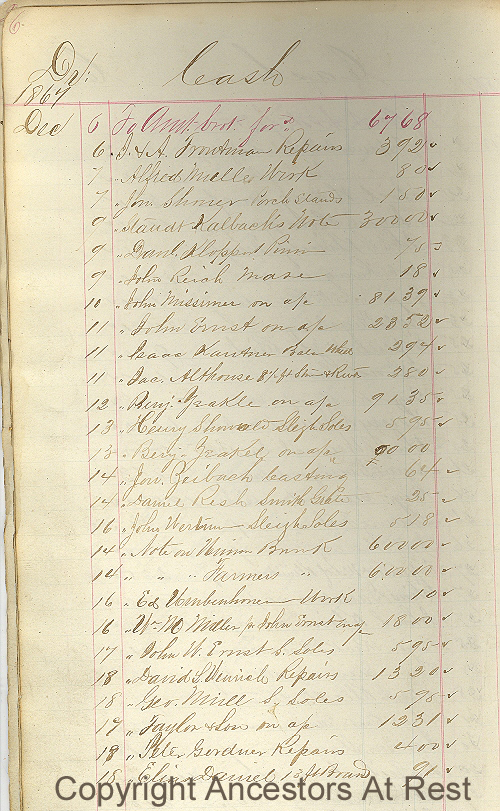 6
Dr.
Cash
1867
Dec 6 To Amt. brot. for'd 67 68
6 " J. & A. Troutman Repairs 3 92
7 " Alfred Miller Work 80
7 " Jon. Shorer Porch Stands 1 50
9 " Staudt Kalbach's Note 300 00
9 " Danl. Klopp 75
9 " John Reich 18
10 " John Missimer on a/c 81 39
11 " John Ernst on a/c 23 52
11 " Isaac Kautner 2 94
11 " Jac. Althouse 3 80
12 " Benj. Grakle on a/c 91 35
13 " Henry Showalt Sleigh Soles 5 95
13 " Benj. Grakel on a/c 00 00
14 " Jon. Zeibach Casting 64
14 " Daniel Resh Smith Grate 25
16 " John Wertman Sleigh Soles 5 18
14 " Note on Union Bank 600 00
14 " " " Farmers " 600 00
16 " Ed Umbenhower Work 10
16 " Wm. M. Miller for John Ernst on a/c 18 00
17 " John W. Ernst S. Soles 5 95
18 " David S. Wenrich Repairs 13 20
18 " Geo. Mill S. Soles 5 95
17 " Taylor & Son on a/c 12 31
18 " Peter Gordner Repairs 4 00
18 " Elias Daniel 13 ft Board 91
Copyright Ancestors At Rest